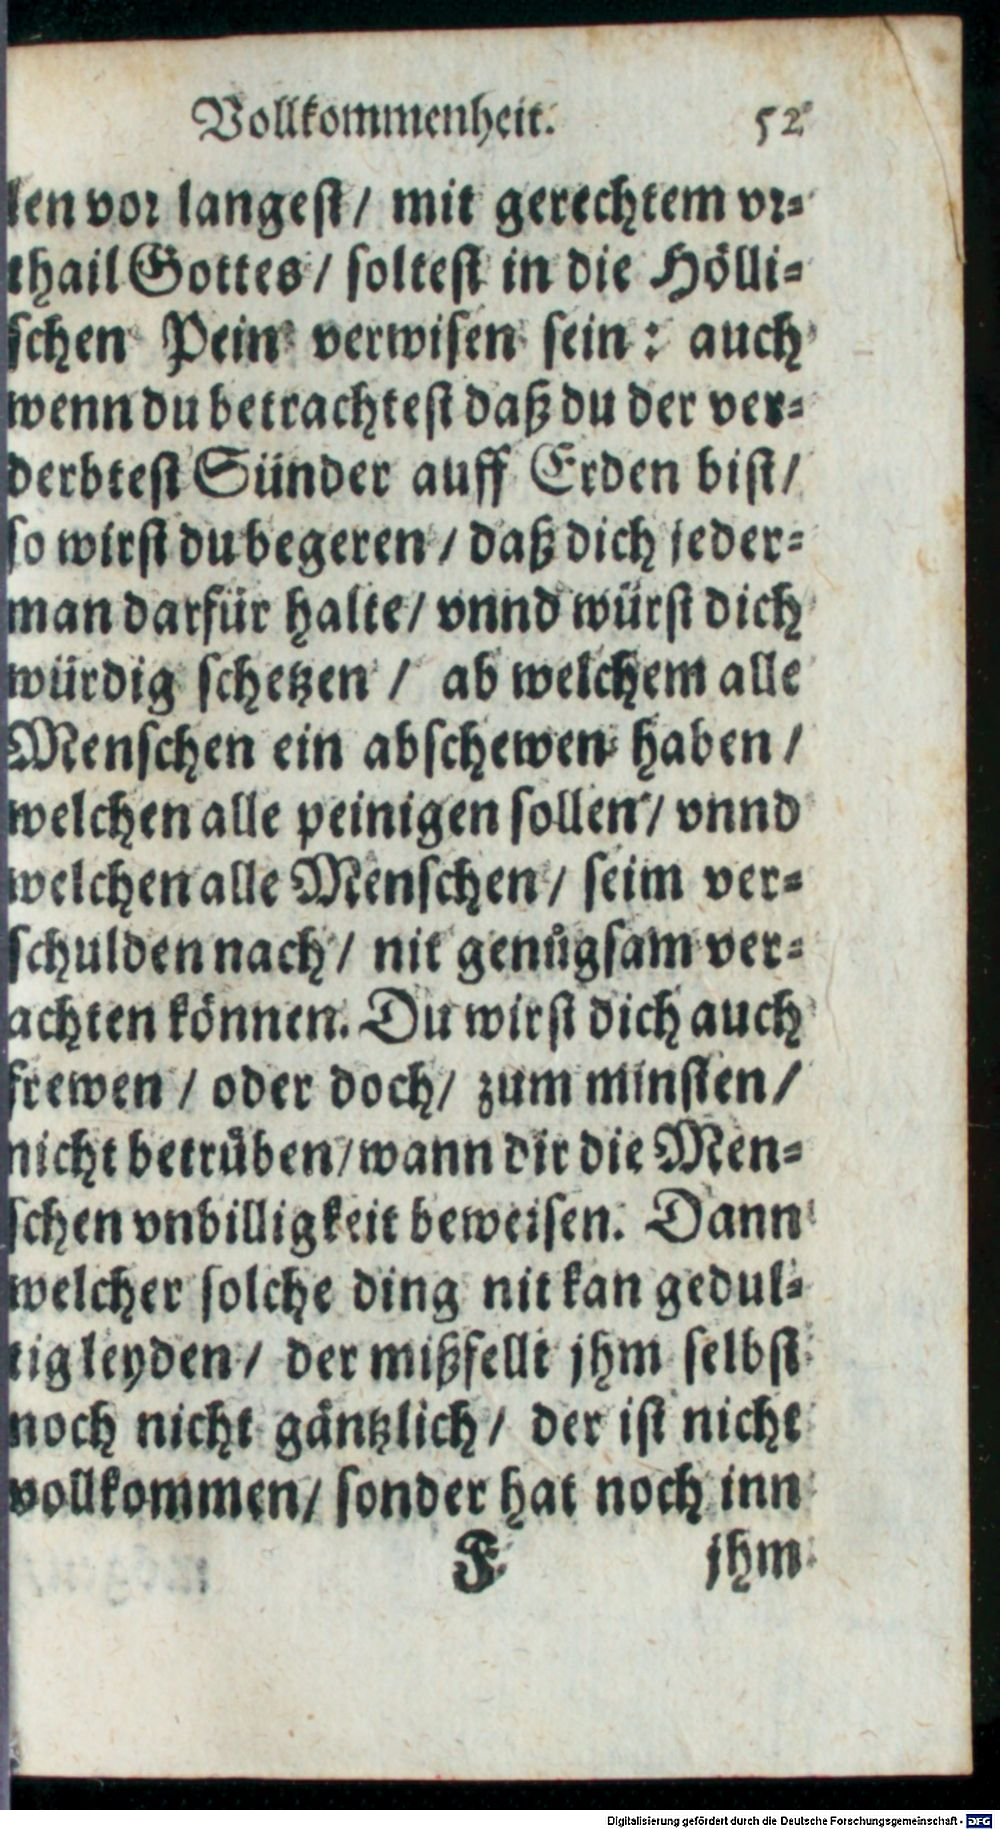 Vollkommenheit. 52
len vor langest/ mit gerechtem vr⸗
thail Gottes/ soltest in die Hölli⸗
schen Pein verwisen sein: auch
wenn du betrachtest daß du der ver⸗
derbtest Sünder auff Erden bist/
so wirst du begeren/ daß dich jeder⸗
man darfür halte/ vnnd würst dich
würdig schetzen/ ab welchem alle
Menschen ein abschewen haben/
welchen alle peinigen sollen/ vnnd
welchen alle Menschen/ seim ver⸗
schulden nach/ nit genůgsam ver⸗
achten können. Du wirst dich auch
frewen/ oder doch/ zum minsten/
nicht betrůben/ wann dir die Men⸗
schen vnbilligkeit beweisen. Dann
welcher solche ding nit kan gedul⸗
tig leyden/ der mißfellt jhm selbst
noch nicht gäntzlich/ der ist nicht
vollkommen/ sonder hat noch inn
F jhm
Digitalisierung gefördert durch die Deutsche Forschungsgemeinschaft - DFG